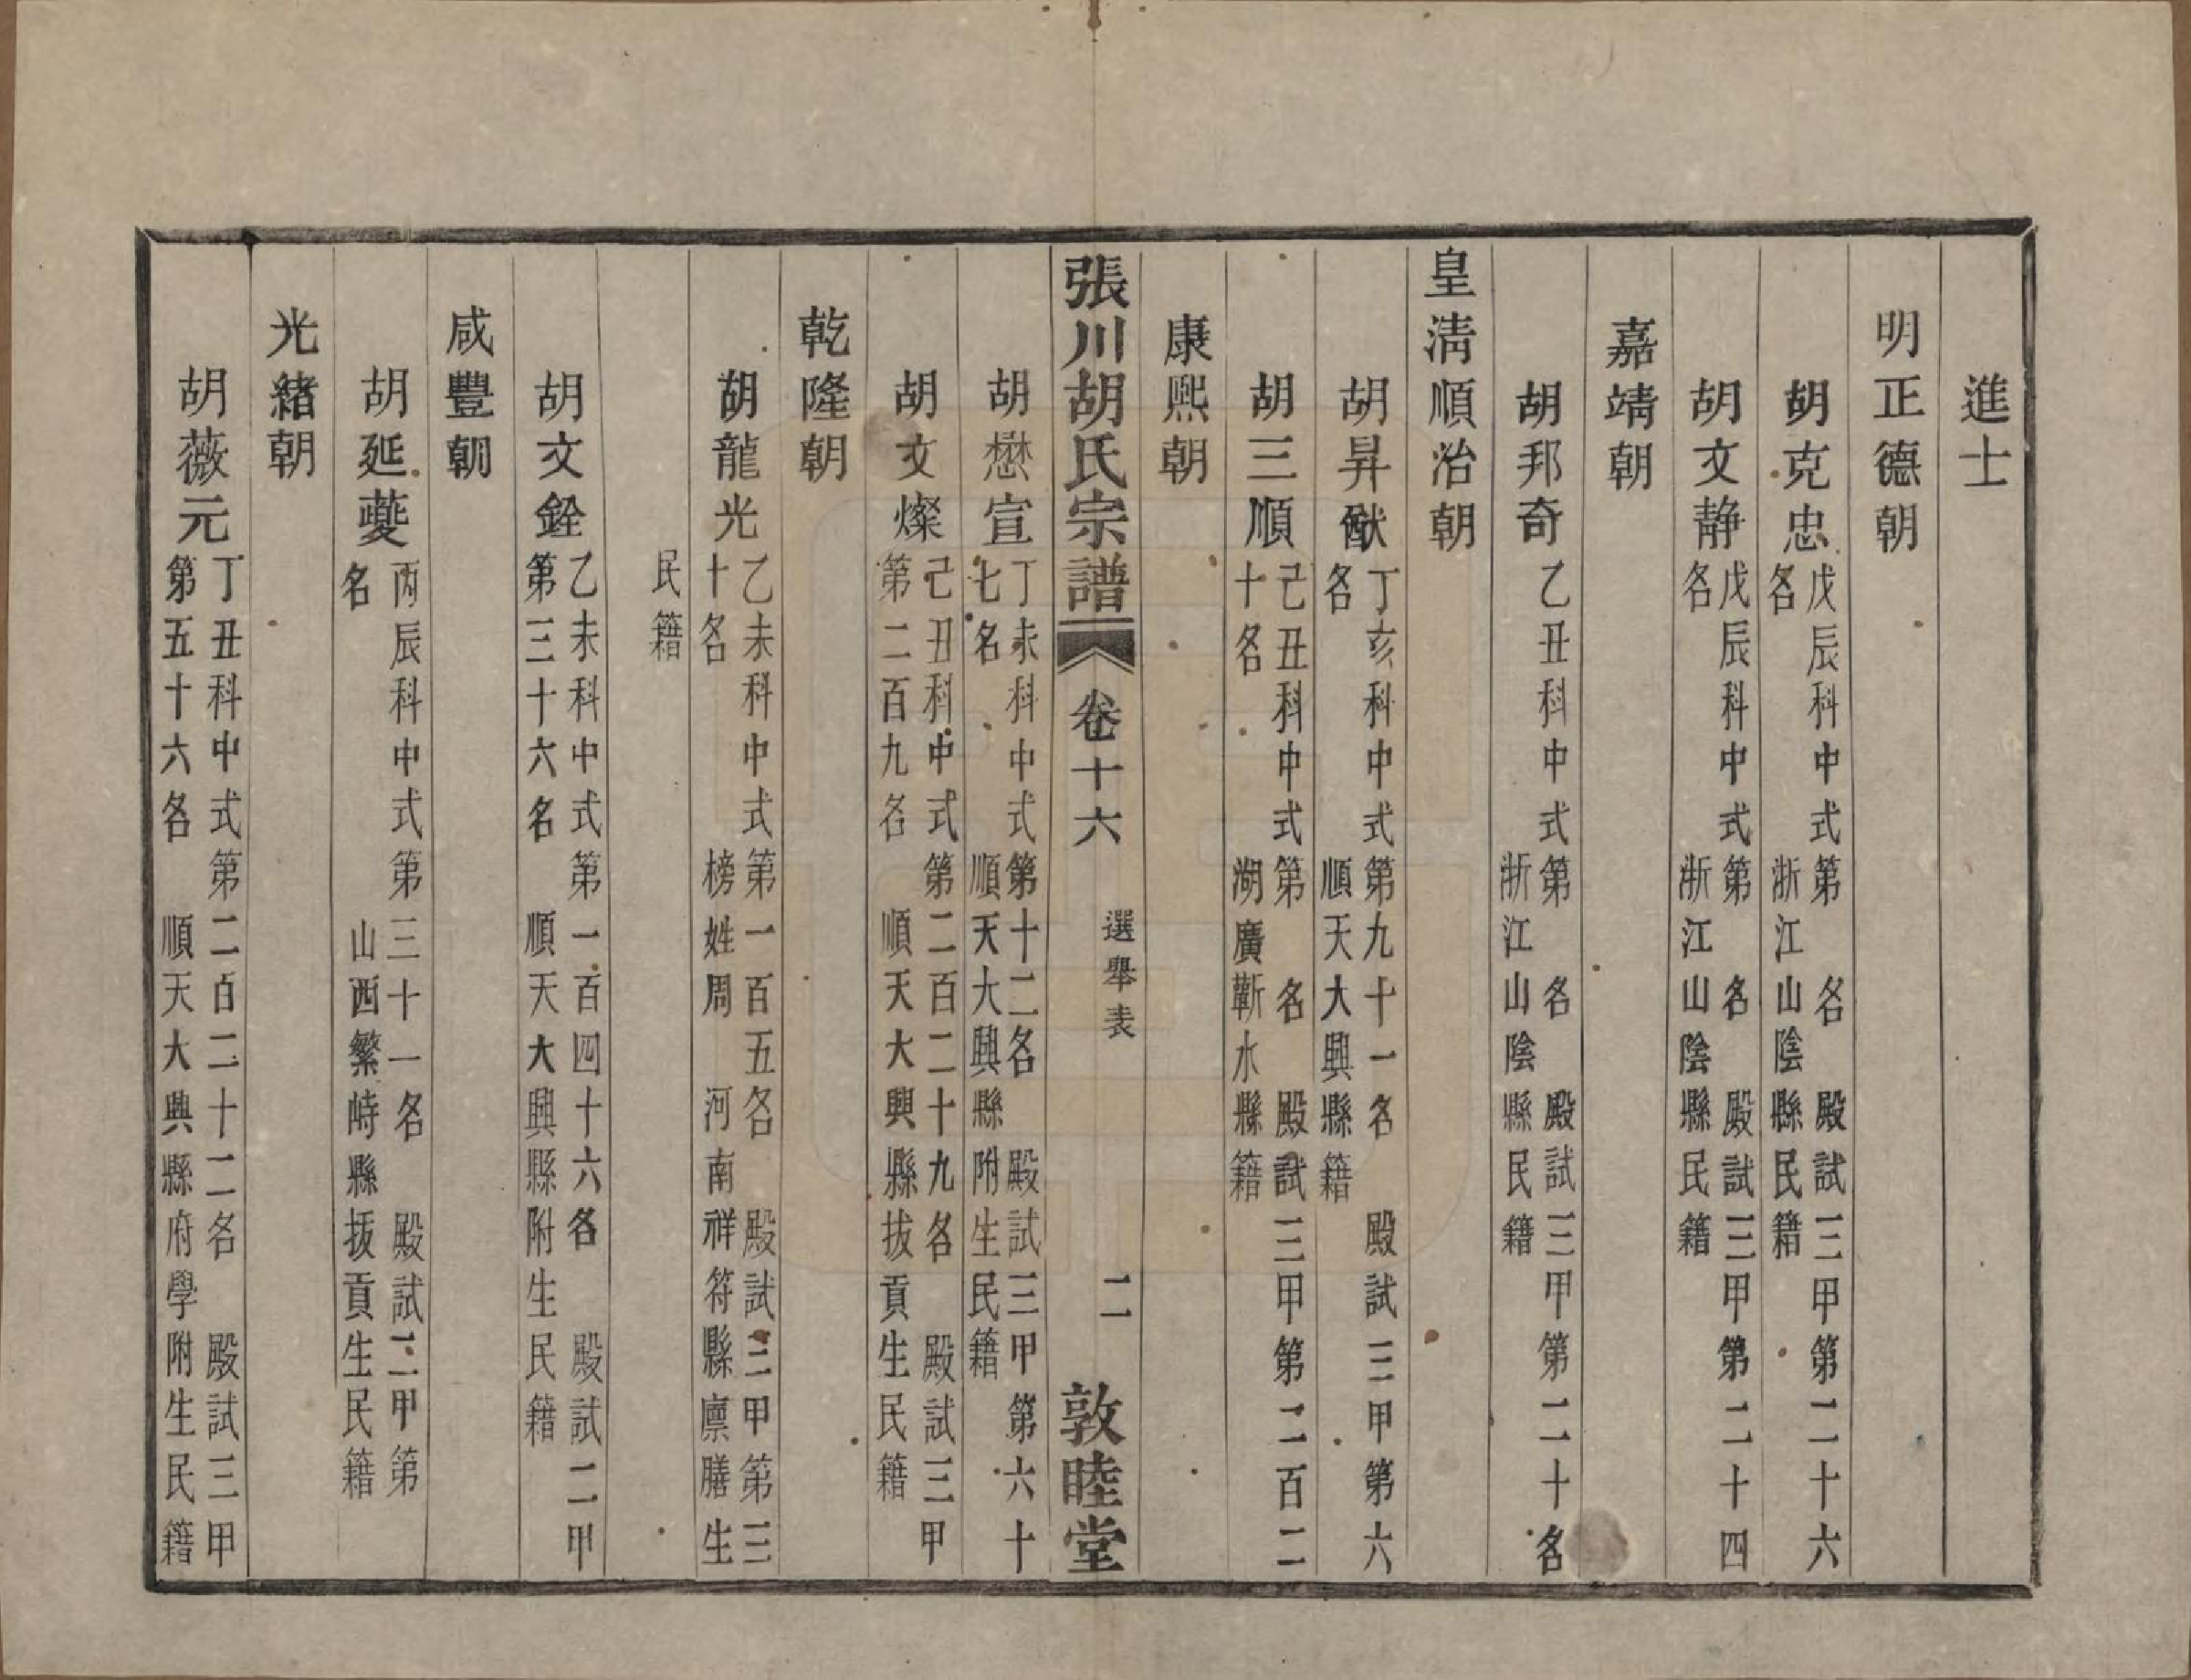 進士
明正德朝
胡克忠 戊辰科中式第　名　殿試三甲第二十六名　浙江山陰縣民籍
胡文靜 戊辰科中式第　名　殿試三甲第二十四名　浙江山陰縣民籍
嘉靖朝
胡邦奇 乙丑科中式第　名　殿試三甲第二十名浙江山陰縣民籍
皇清順治朝
胡昇猷 丁亥科中式第九十一名　殿試三甲第六名　順天大興縣籍
胡三順 己丑科中式第　名　殿試三甲第二百二十名　湖廣蘄水縣籍
康熙朝
張川胡氏宗譜 卷十六 選舉表 二 敦睦堂
胡懋宣 丁未科中式第十二名　殿試三甲第六十七名　順天大興縣附生民籍
胡文燦 己丑科中式第二百二十九名　殿試三甲第二百九名　順天大興縣拔貢生民籍
乾隆朝
胡龍光 乙未科中式第一百五名　殿試三甲第三十名　榜姓周　河南祥符縣廩膳生
民籍
胡文銓 乙未科中式第一百四十六名　殿試二甲第三十六名　順天大興縣附生民籍
咸豐朝
胡延夔 丙辰科中式第三十一名　殿試二甲第名　山西繁峙縣拔貢生民籍
光緒朝
胡薇元 丁丑科中式第二百二十二名　殿試三甲第五十六名　順天大興縣府學附生民籍